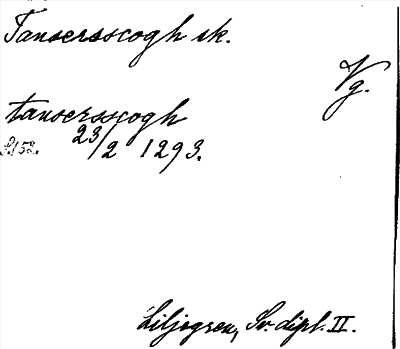 Tansersscogh sk.
Vg.
tansersscogh
S. 152. 23/2 1293.
Liljegren, Sv. dipl. II.